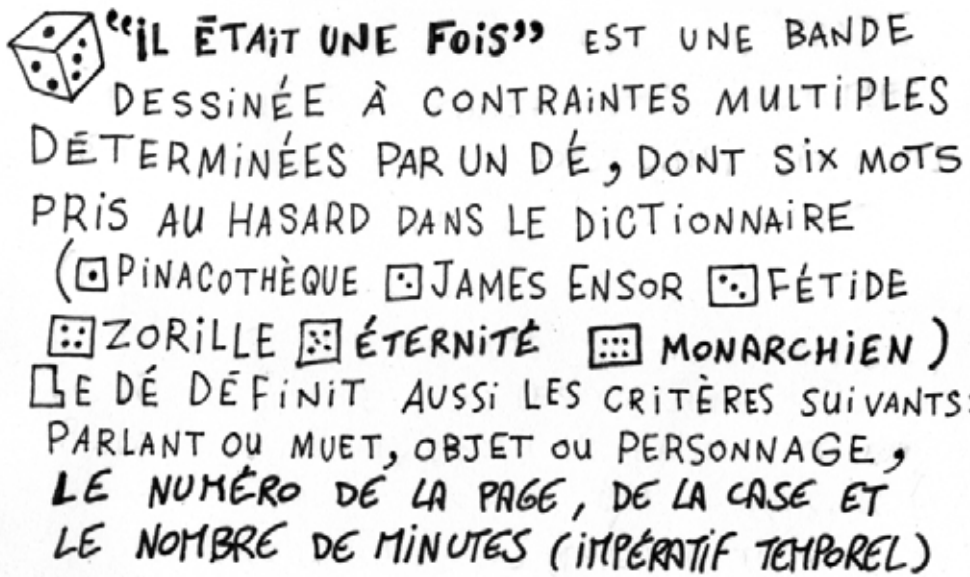 “iL ÉTAiT UNE FOiS” EST UNE BANDE
DESSiNÉE À CONTRAiNTES MULTiPLES
DÉTERMiNÉES PAR UN DÉ, DONT SiX MOTS
PRiS AU HASARD DANS LE DiCTiONNAiRE
(⚀PiNACOTHÈQUE ⚁JAMES ENSOR ⚂FÉTiDE
⚃ZORiLLE ⚄ÉTERNiTÉ ⚅ MONARCHiEN)
LE DÉ DÉFiNiT AUSSi LES CRiTÈRES SUiVANTS:
PARLANT OU MUET, OBJET OU PERSONNAGE,
LE NUMÉRO DE LA PAGE, DE LA CASE ET
LE NOMBRE DE MiNUTES (iMPÉRATiF TEMPOREL)